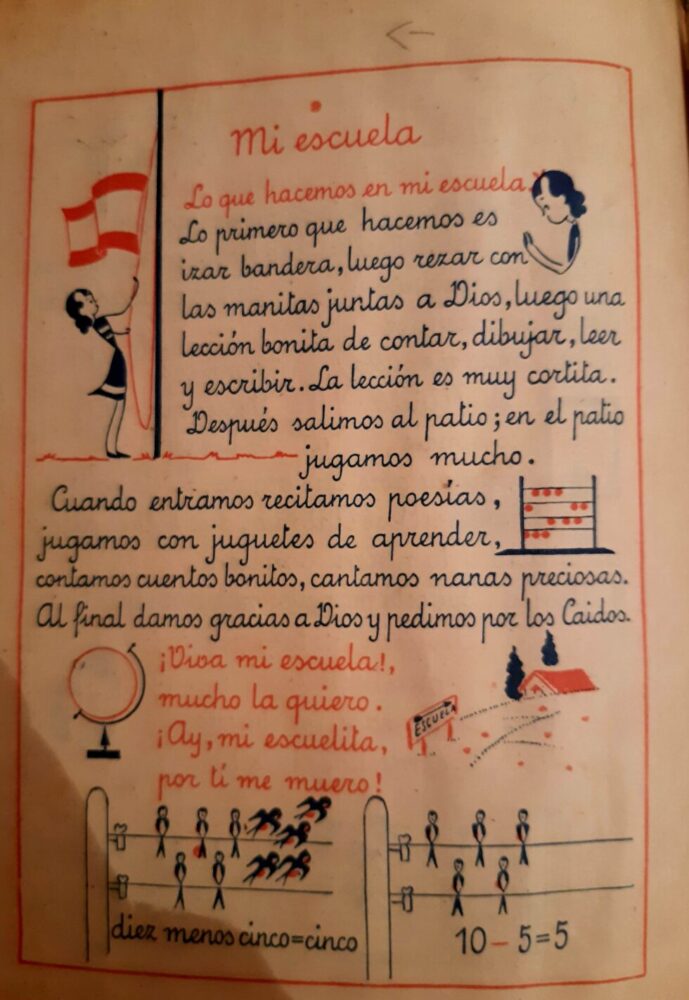 Mi escuela
Lo que hacemos en mi escuela.
Lo primero que hacemos es
izar bandera, luego rezar con
las manitas juntas a Dios, luego una
lección bonita de contar, dibujar, leer
y escribir. La lección es muy cortita.
Después salimos al patio; en el patio
jugamos mucho.
Cuando entramos recitamos poesías,
jugamos con juguetes de aprender,
contamos cuentos bonitos, cantamos nanas preciosas.
Al final damos gracias a Dios y pedimos por los Caidos.
¡Viva mi escuela!,
mucho la quiero.
¡Ay, mi escuelita,
por tí me muero!
ESCUELA
diez menos cinco=cinco
10-5=5